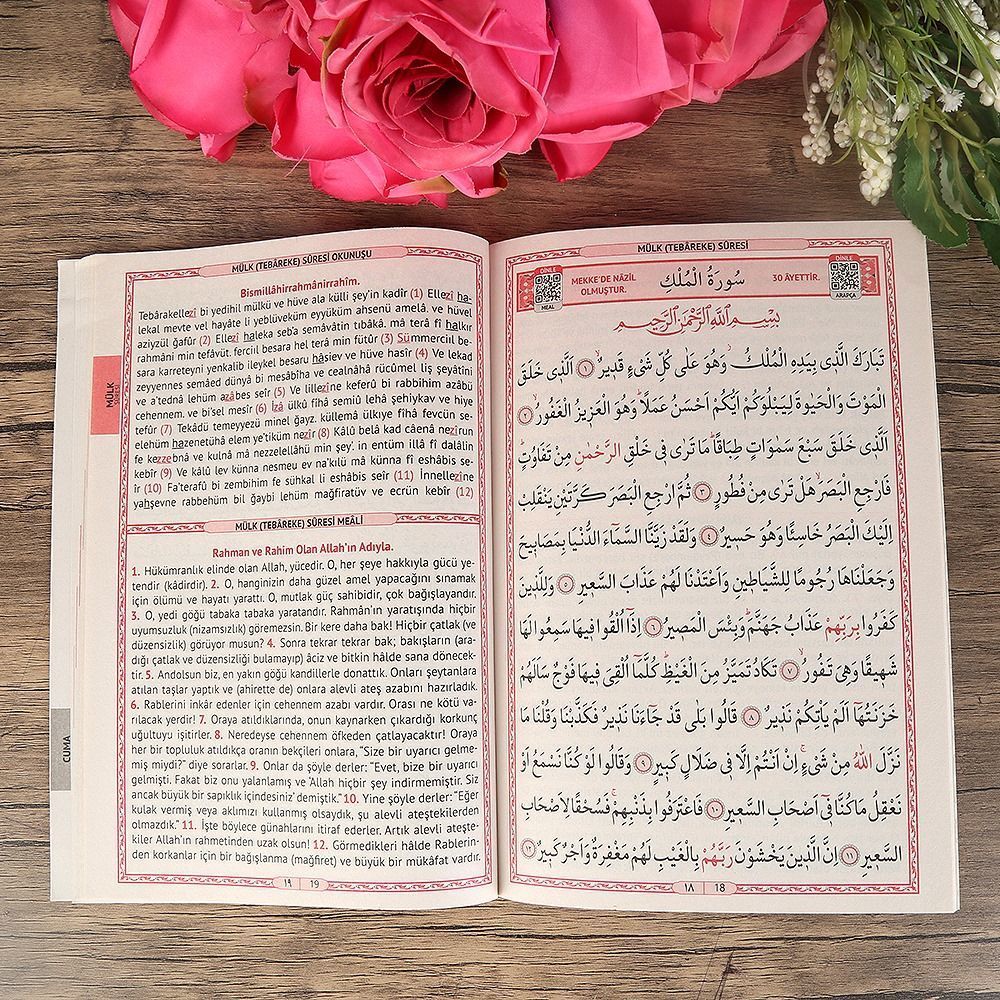 MÜLK (TEBÂREKE) SÛRESİ
DİNLE
MEAL
MEKKE'DE NÂZİL
OLMUŞTUR.
سُورَةُ الْمُلْكِ
30 ÂYETTİR.
DİNLE
ARAPÇA
بِسْمِ اللّٰهِ الرَّحْمٰنِ الرَّحٖيمِ
تَبَارَكَ الَّذٖي بِيَدِهِ الْمُلْكُ وَهُوَ عَلٰى كُلِّ شَيْءٍ قَدٖيرٌۙ ﴿١﴾ اَلَّذٖي خَلَقَ
الْمَوْتَ وَالْحَيٰوةَ لِيَبْلُوَكُمْ اَيُّكُمْ اَحْسَنُ عَمَلاًۜ وَهُوَ الْعَزٖيزُ الْغَفُورُۙ ﴿٢﴾
اَلَّذٖي خَلَقَ سَبْعَ سَمٰوَاتٍ طِبَاقاًۜ مَا تَرٰى فٖي خَلْقِ الرَّحْمٰنِ مِنْ تَفَاوُتٍۜ
فَارْجِعِ الْبَصَرَۙ هَلْ تَرٰى مِنْ فُطُورٍ ﴿٣﴾ ثُمَّ ارْجِعِ الْبَصَرَ كَرَّتَيْنِ يَنْقَلِبْ
اِلَيْكَ الْبَصَرُ خَاسِئًا وَهُوَ حَسٖيرٌ ﴿٤﴾ وَلَقَدْ زَيَّنَّا السَّمَٓاءَ الدُّنْيَا بِمَصَابٖيحَ
وَجَعَلْنَاهَا رُجُومًا لِلشَّيَاطٖينِ وَاَعْتَدْنَا لَهُمْ عَذَابَ السَّعٖيرِ ﴿٥﴾ وَلِلَّذٖينَ
كَفَرُوا بِرَبِّهِمْ عَذَابُ جَهَنَّمَۜ وَبِئْسَ الْمَصٖيرُ ﴿٦﴾ اِذَٓا اُلْقُوا فٖيهَا سَمِعُوا لَهَا
شَهٖيقًا وَهِيَ تَفُورُۙ ﴿٧﴾ تَكَادُ تَمَيَّزُ مِنَ الْغَيْظِۜ كُلَّمَٓا اُلْقِيَ فٖيهَا فَوْجٌ سَاَلَهُمْ
خَزَنَتُهَٓا اَلَمْ يَأْتِكُمْ نَذٖيرٌ ﴿٨﴾ قَالُوا بَلٰى قَدْ جَٓاءَنَا نَذٖيرٌ فَكَذَّبْنَا وَقُلْنَا مَا
نَزَّلَ اللّٰهُ مِنْ شَيْءٍۚ اِنْ اَنْتُمْ اِلَّا فٖي ضَلَالٍ كَبٖيرٍ ﴿٩﴾ وَقَالُوا لَوْ كُنَّا نَسْمَعُ اَوْ
نَعْقِلُ مَا كُنَّا فٖٓي اَصْحَابِ السَّعٖيرِ ﴿١٠﴾ فَاعْتَرَفُوا بِذَنْبِهِمْۚ فَسُحْقًا لِاَصْحَابِ
السَّعٖيرِ ﴿١١﴾ اِنَّ الَّذٖينَ يَخْشَوْنَ رَبَّهُمْ بِالْغَيْبِ لَهُمْ مَغْفِرَةٌ وَاَجْرٌ كَبٖيرٌ ﴿١٢﴾
١٨ 18
MÜLK (TEBÂREKE) SÛRESİ OKUNUŞU
Bismillâhirrahmânirrahîm.
Tebârakellezî bi yedihil mülkü ve hüve ala külli şey'in kadîr (1) Ellezî ha-
lekal mevte vel hayâte li yeblüveküm eyyüküm ahsenü amelâ. ve hüvel
azîyzül ğafûr (2) Ellezî haleka seb'a semâvâtin tıbâkâ. mâ terâ fî halkır
rahmâni min tefâvüt ferciıl besara hel terâ min fütûr (3) Sümmerciıl be-
sara karreteyni yenkalib ileykel besaru hâsiev ve hüve hasîr (4) Ve lekad
zeyyennes semâed dünyâ bi mesâbîha ve cealnâhâ rücûmel liş şeyâtîni
ve a'tednâ lehüm azâbes seîr (5) Ve lillezîne keferû bi rabbihim azâbü
cehennem. ve bi'sel mesîr (6) İzâ ülkû fîhâ semiû lehâ şehîykav ve hiye
tefûr (7) Tekâdü temeyyezü minel ğayz. küllemâ ülkıye fîhâ fevcün se-
elehüm hazenetühâ elem ye'tiküm nezîr (8) Kâlû belâ kad câenâ nezîrun
fe kezzebnâ ve kulnâ mâ nezzelellâhü min şey'. in entüm illâ fî dalâlin
kebîr (9) Ve kâlû lev künna nesmeu ev na'kılü mâ künna fî eshâbis se-
îr (10) Fa'terafû bi zembihim fe sühkal li eshâbis seîr (11) İnnellezîne
yahşevne rabbehüm bil ğaybi lehüm mağfiratüv ve ecrün kebîr (12)
MÜLK (TEBÂREKE) SÛRESİ MEÂLİ
Rahman ve Rahim Olan Allah'ın Adıyla.
1. Hükümranlık elinde olan Allah, yücedir. O, her şeye hakkıyla gücü ye-
tendir (kâdirdir). 2. O, hanginizin daha güzel amel yapacağını sınamak
için ölümü ve hayatı yarattı. O, mutlak güç sahibidir, çok bağışlayandır.
3. O, yedi göğü tabaka tabaka yaratandır. Rahmân'ın yaratışında hiçbir
uyumsuzluk (nizamsızlık) göremezsin. Bir kere daha bak! Hiçbir çatlak (ve
düzensizlik) görüyor musun? 4. Sonra tekrar tekrar bak; bakışların (ara-
dığı çatlak ve düzensizliği bulamayıp) âciz ve bitkin hâlde sana dönecek-
tir. 5. Andolsun biz, en yakın göğü kandillerle donattık. Onları şeytanlara
atılan taşlar yaptık ve (ahirette de) onlara alevli ateş azabını hazırladık.
6. Rablerini inkâr edenler için cehennem azabı vardır. Orası ne kötü va-
rılacak yerdir! 7. Oraya atıldıklarında, onun kaynarken çıkardığı korkunç
uğultuyu işitirler. 8. Neredeyse cehennem öfkeden çatlayacaktır! Oraya
her bir topluluk atıldıkça oranın bekçileri onlara, "Size bir uyarıcı gelme-
miş miydi?" diye sorarlar. 9. Onlar da şöyle derler: "Evet, bize bir uyarıcı
gelmişti. Fakat biz onu yalanlamış ve 'Allah hiçbir şey indirmemiştir. Siz
ancak büyük bir sapıklık içindesiniz' demiştik." 10. Yine şöyle derler: "Eğer
kulak vermiş veya aklımızı kullanmış olsaydık, şu alevli ateştekilerden
olmazdık." 11. İşte böylece günahlarını itiraf ederler. Artık alevli ateşte-
kiler Allah'ın rahmetinden uzak olsun! 12. Görmedikleri hâlde Rablerin-
den korkanlar için bir bağışlanma (mağfiret) ve büyük bir mükâfat vardır.
١٩ 19
MÜLK
SÛRESİ
CUMA